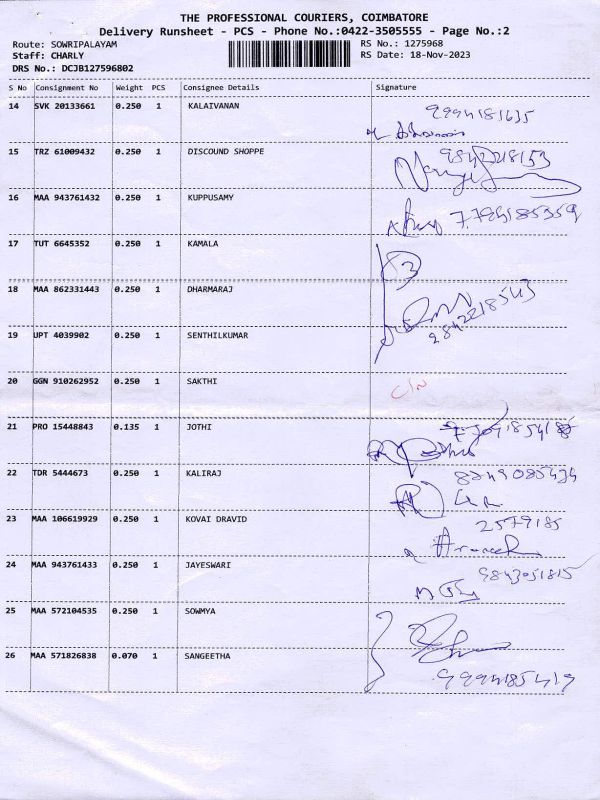 THE PROFESSIONAL COURIERS, COIMBATORE
Delivery Runsheet - PCS - Phone No.:0422-3505555 - Page No.:2
Route: SOWRIPALAYAM RS No.: 1275968
Staff: CHARLY RS Date: 18-Nov-2023
DRS No.: DCJB127596802
S No Consignment No Weight PCS Consignee Details Signature
14 SVK 20133661 0.250 1 KALAIVANAN 9994181635
15 TRZ 61009432 0.250 1 DISCOUND SHOPPE
16 MAA 943761432 0.250 1 KUPPUSAMY
17 TUT 6645352 0.250 1 KAMALA
18 MAA 862331443 0.250 1 DHARMARAJ
19 UPT 4039902 0.250 1 SENTHILKUMAR
20 GGN 910262952 0.250 1 SAKTHI
21 PRO 15448843 0.135 1 JOTHI
22 TDR 5444673 0.250 1 KALIRAJ
23 MAA 106619929 0.250 1 KOVAI DRAVID 2579185
24 MAA 943761433 0.250 1 JAYESWARI 9843051815
25 MAA 572104535 0.250 1 SOWMYA
26 MAA 571826838 0.070 1 SANGEETHA 9994185419